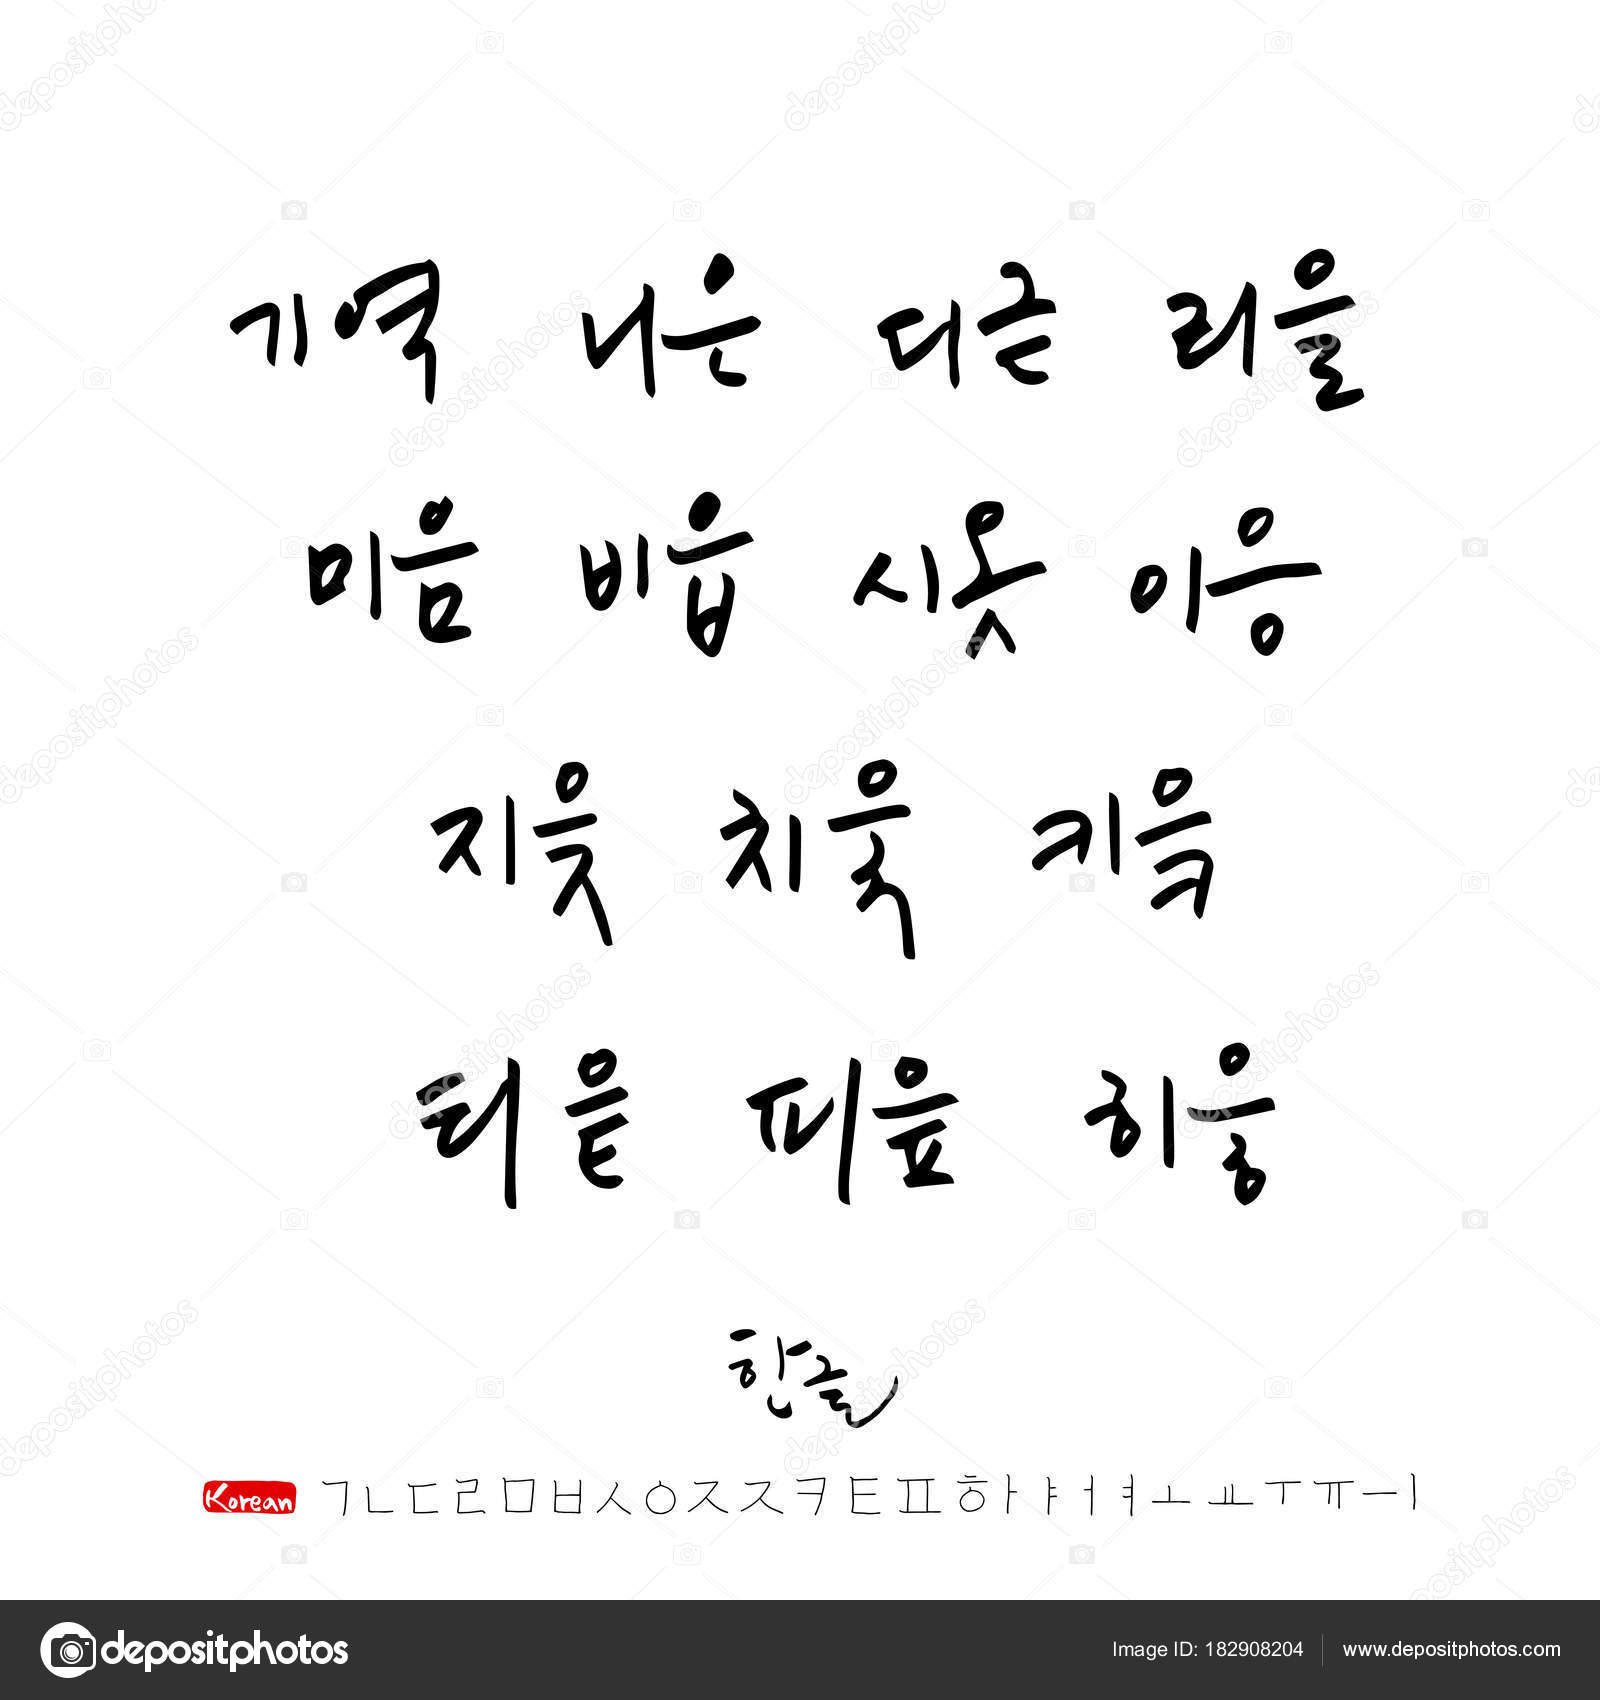 기역 니은 디귿 리을
미음 비읍 시옷 이응
지읒 치읓 키읔
티읕 피읖 히읗
한글
Korean ㄱㄴㄷㄹㅁㅂㅅㅇㅈㅈㅋㅌㅍㅎㅏㅑㅓㅕㅗㅛㅜㅠㅡㅣ
depositphotos Image ID: 182908204 www.depositphotos.com